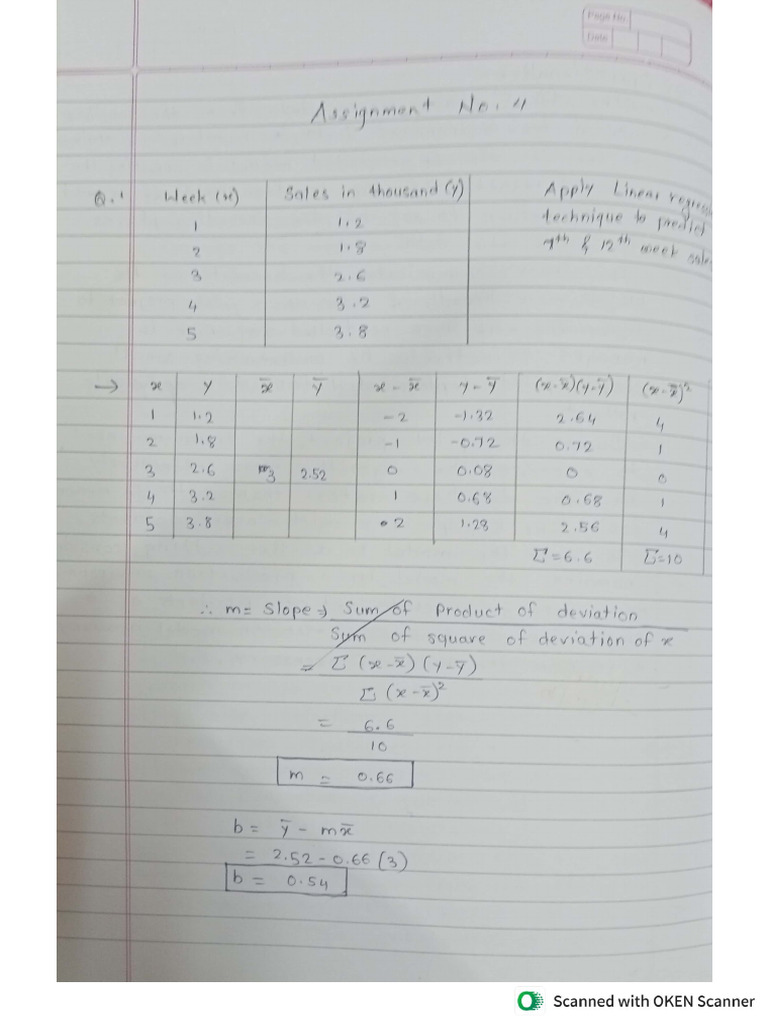 Page No.
Date
Assignment No. 4
Q.1 Week (x) Sales in thousand (y) Apply Linear regression
1 1.2 technique to predict
2 1.8 7th & 12th week sales
3 2.6
4 3.2
5 3.8
→ x y x̄ ȳ x - x̄ y - ȳ (x-x̄)(y-ȳ) (x-x̄)²
1 1.2 -2 -1.32 2.64 4
2 1.8 -1 -0.72 0.72 1
3 2.6 3 2.52 0 0.08 0 0
4 3.2 1 0.68 0.68 1
5 3.8 2 1.28 2.56 4
Σ = 6.6 Σ=10
∴ m = Slope ⇒ Sum of Product of deviation
Sum of square of deviation of x
= Σ (x-x̄) (y-ȳ)
Σ (x-x̄)²
= 6.6
10
m = 0.66
b = ȳ - mx̄
= 2.52 - 0.66 (3)
b = 0.54
Scanned with OKEN Scanner